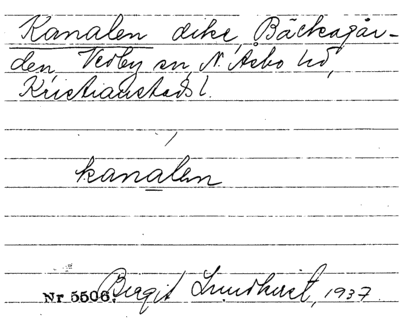 Kanalen dike, Bäckagår-
den, Vedby sn, N. Åsbo hd,
Kristianstads l.
kanalen
Nr 5506. Birgit Lundkvist, 1937